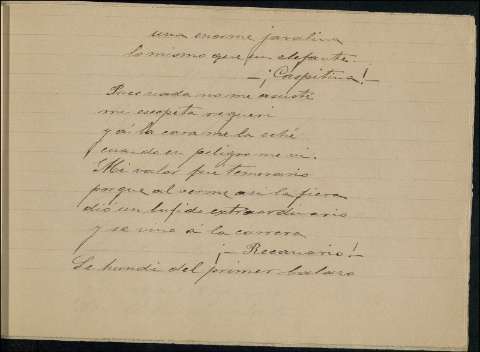 una enorme javalina
lo mismo que un elefante.
—¡Caspitina!—
Pues nada no me asusté
mi escopeta requerí
y á la cara me la eché
cuando en peligro me vi.
Mi valor fue temerario
porque al verme asi la fiera
dió un bufido extraordinario
y se vino á la carrera
¡— Recanario!—
Le hundí del primer balazo